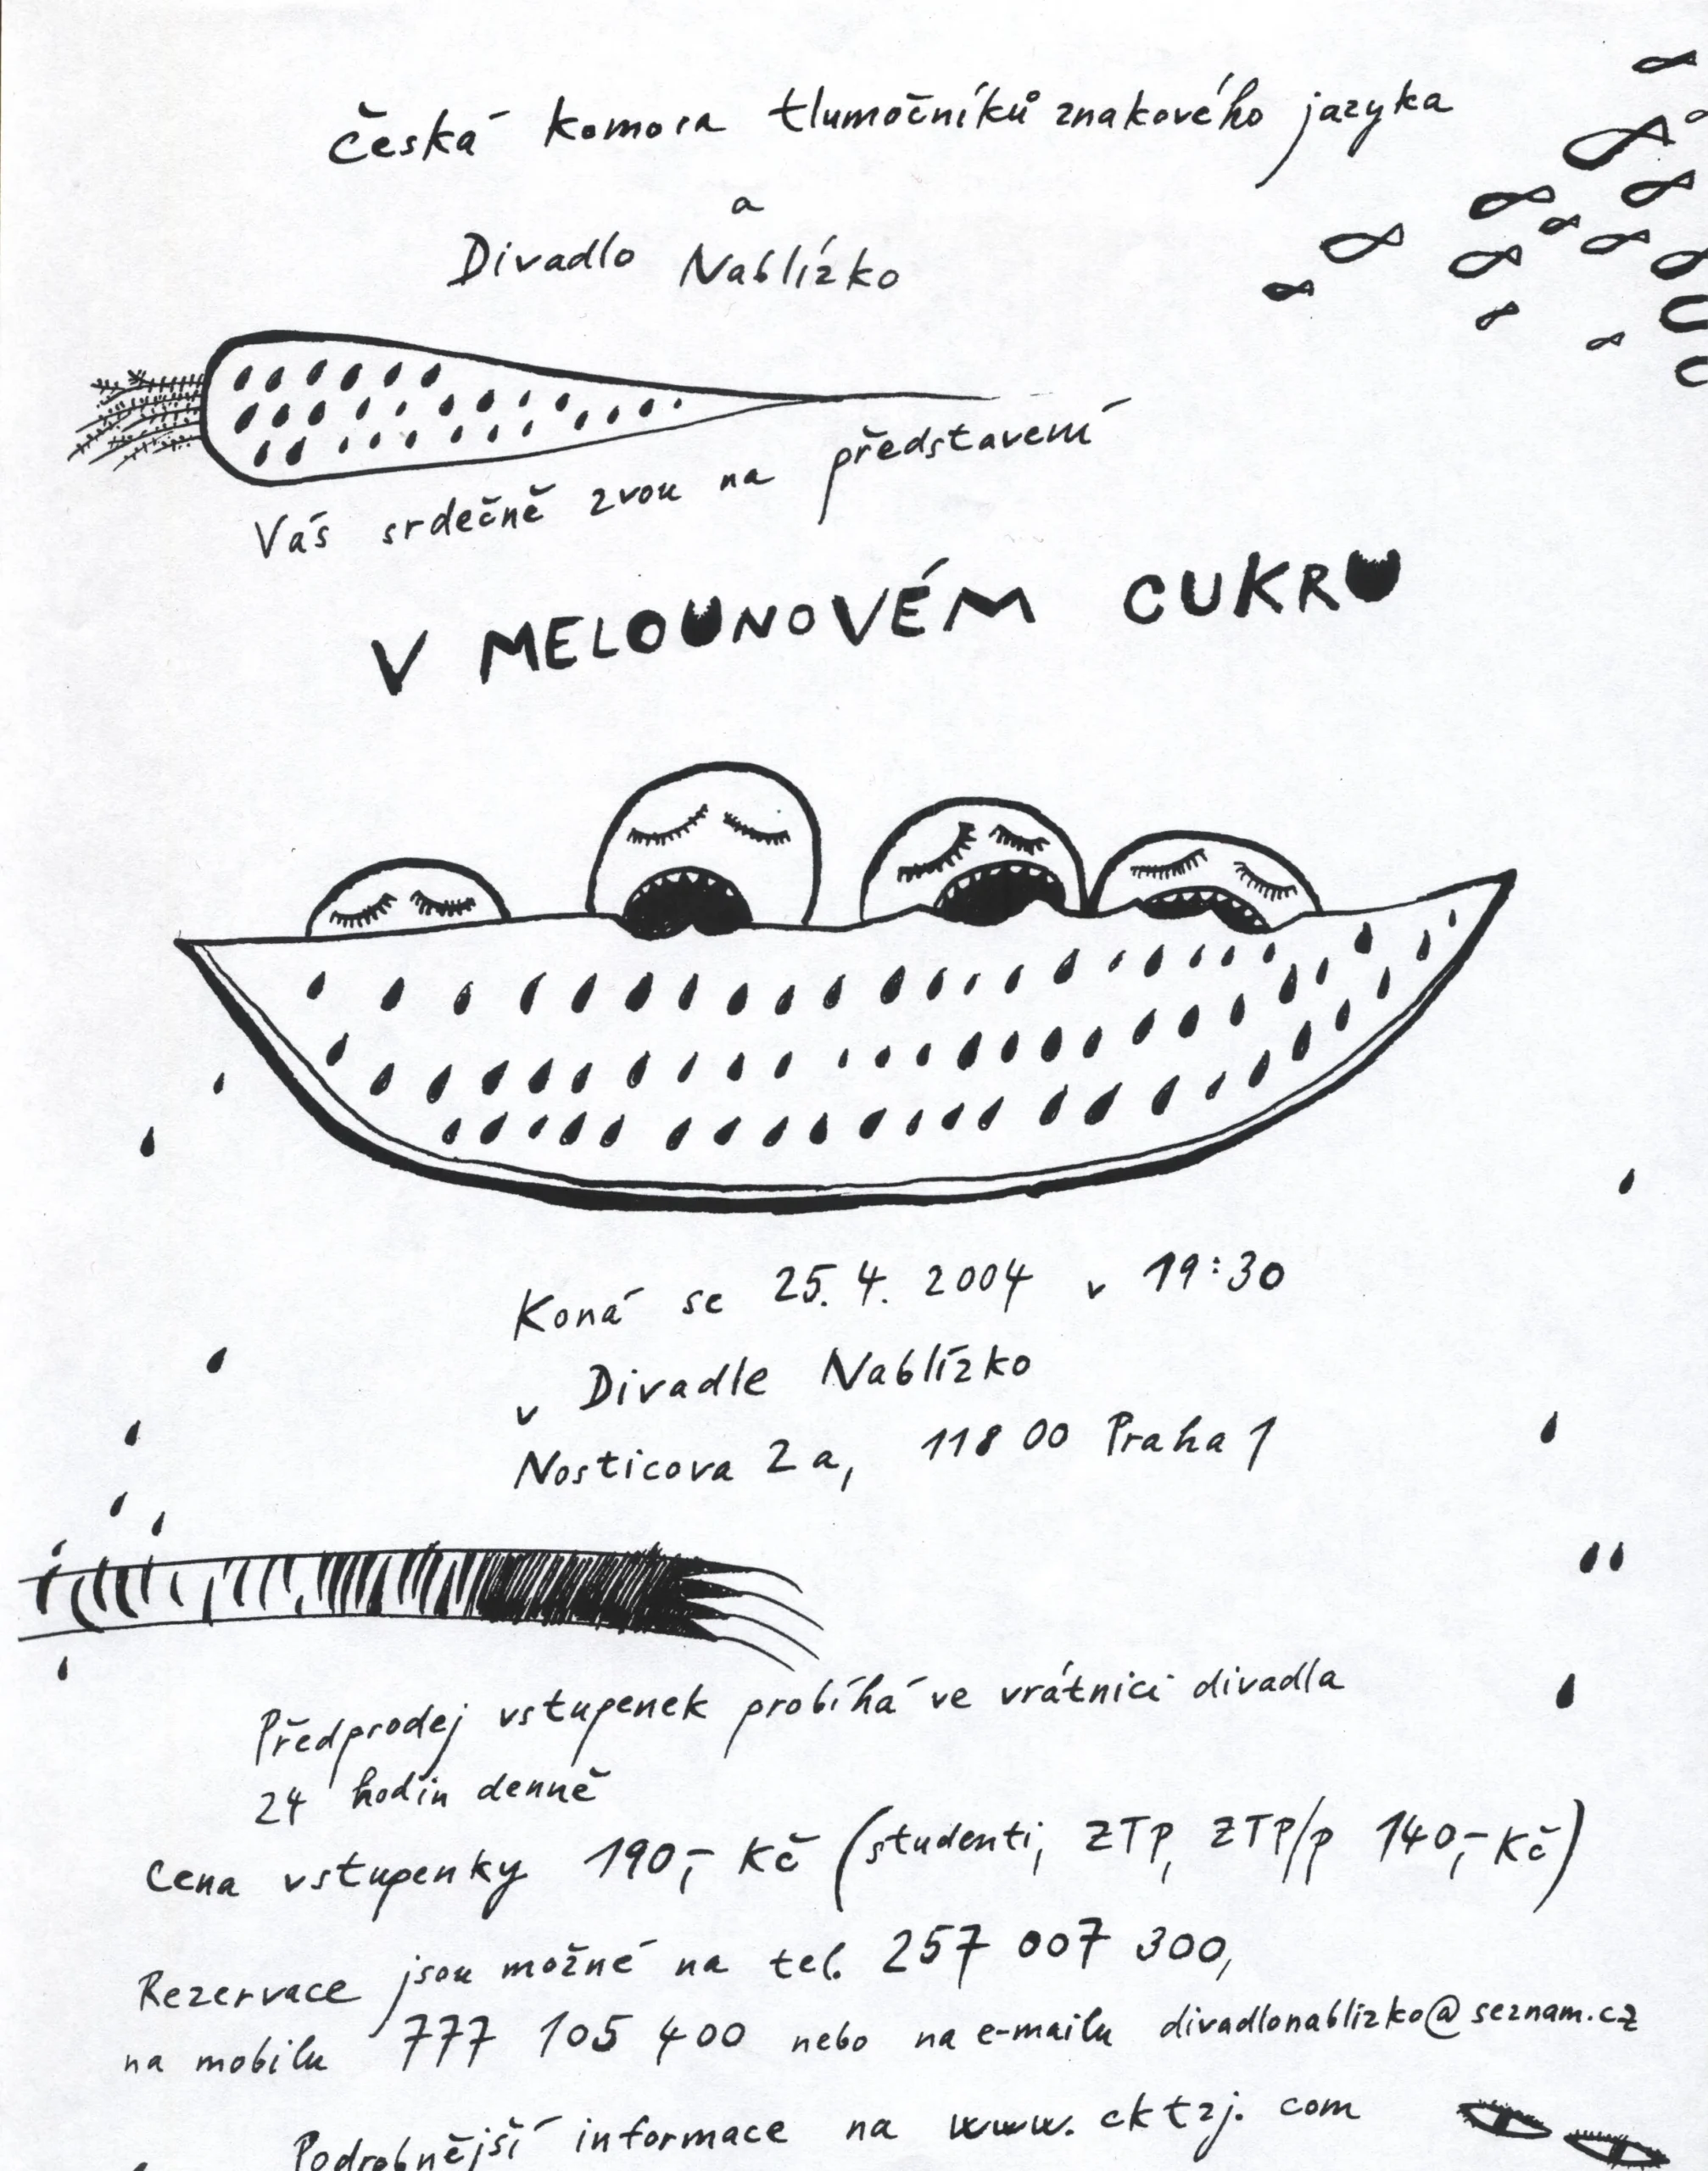 Česká komora tlumočníků znakového jazyka
a
Divadlo Nablízko
Vás srdečně zvou na představení
V MELOUNOVÉM CUKRU
Koná se 25. 4. 2004 v 19:30
v Divadle Nablízko
Nosticova 2a, 118 00 Praha 1
Předprodej vstupenek probíhá ve vrátnici divadla
24 hodin denně
Cena vstupenky 190,- Kč (studenti, ZTP, ZTP/p 140,- Kč)
Rezervace jsou možné na tel. 257 007 300,
na mobilu 777 105 400 nebo na e-mailu divadlonablizko@seznam.cz
Podrobnější informace na www.cktzj.com